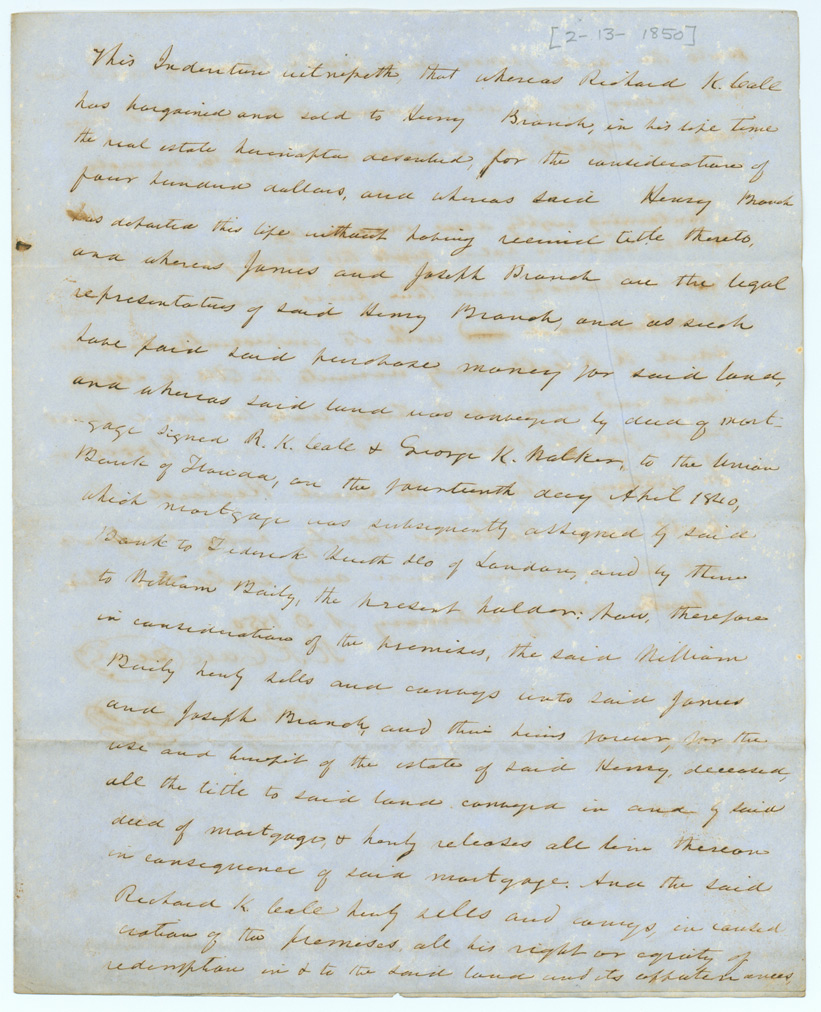 [2-13-1850]
This Indenture witnesseth, that whereas Richard K. Call
has bargained and sold to Henry Branch, in his life time
the real estate hereinafter described, for the consideration of
four hundred dollars, and whereas said Henry Branch
has departed this life without having received title thereto,
and whereas James and Joseph Branch are the legal
representatives of said Henry Branch, and as such
have paid said purchase money for said land,
and whereas said land was conveyed by deed of mort-
gage signed R. K. Call & George K. Walker, to the Union
Bank of Florida, on the fourteenth day April 1840,
which mortgage was subsequently assigned by said
Bank to Frederick Huth &co of London, and by them
to William Baily, the present holder: Now, therefore
in consideration of the premises, the said William
Baily hereby sells and conveys unto said James
and Joseph Branch, and their heirs forever, for the
use and benefit of the estate of said Henry, deceased,
all the title to said land conveyed in and by said
deed of mortgage, & hereby releases all lien thereon
in consequence of said mortgage. And the said
Richard K. Call hereby sells and conveys, in consid
eration of the premises, all his right or equity of
redemption in & to the said land and its appurtenances